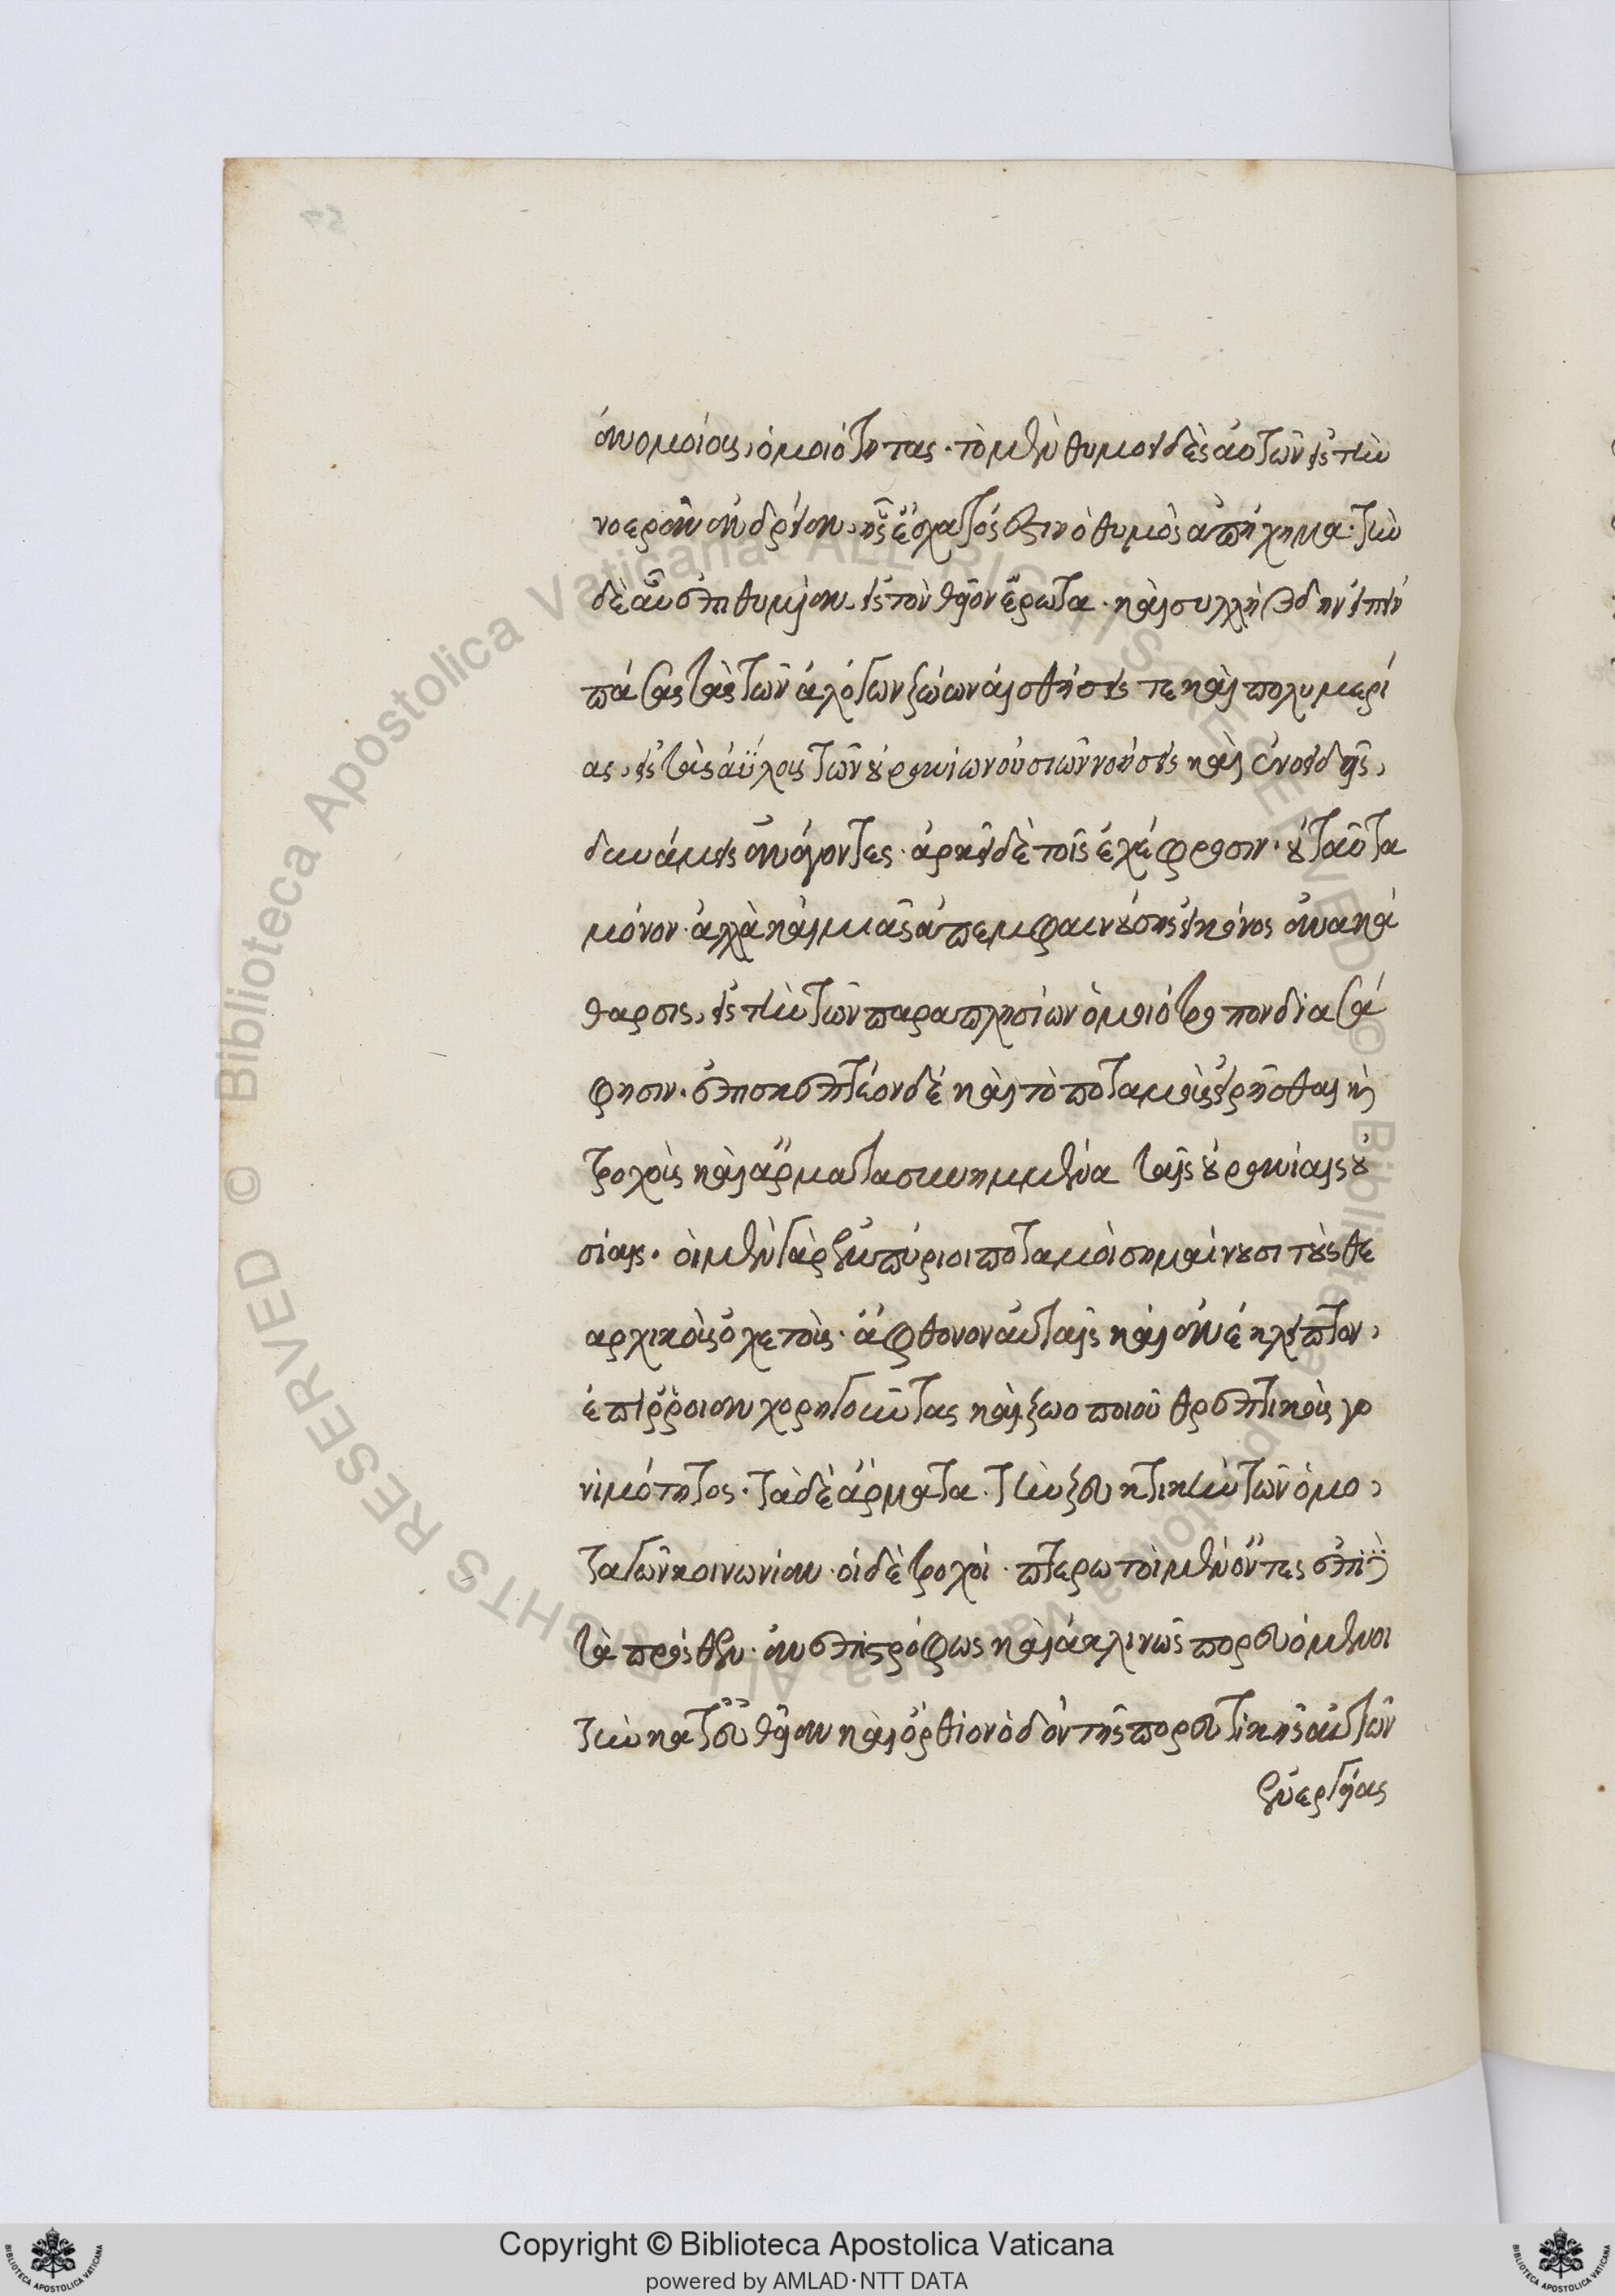 ἀνομοίους ὁμοιότητας· τὸ μὲν θυμοειδὲς αὐτῶν εἰς τὴν
νοερὰν ἀνδρείαν, ἧς ἔσχατός ἐστιν ὁ θυμὸς ἀπήχημα· τὴν
δὲ αὖ ἐπιθυμίαν, εἰς τὸν θεῖον ἔρωτα· καὶ συλλήβδην εἰπεῖν
πάσας τὰς τῶν ἀλόγων ζώων αἰσθήσεις τε καὶ πολυμερί
ας, εἰς τὰς ἀΰλους τῶν οὐρανίων οὐσιῶν νοήσεις καὶ ἑνοειδεῖς,
δυνάμεις ἀνάγοντες· ἀρκεῖ δὲ τοῖς ἐχέφροσιν· οὐ ταῦτα
μόνον· ἀλλὰ καὶ μιᾶς ἀπεμφαινούσης εἰκόνος ἀνακά
θαρσις, εἰς τὴν τῶν παραπλησίων ὁμοιότροπον διασά
φησιν· ἐπισκεπτέον δὲ καὶ τὸ ποταμοὺς εἰρῆσθαι καὶ
τροχοὺς καὶ ἅρματα συνημμένα ταῖς οὐρανίαις οὐ
σίαις· οἱ μὲν γὰρ ἐμπύριοι ποταμοὶ σημαίνουσι τοὺς θε
αρχικοὺς ὀχετοὺς· ἄφθονον αὐταῖς καὶ ἀνέκλειπτον,
ἐπίῤῥοιαν χορηγοῦντας καὶ ζωοποιοῦ θρεπτικοὺς γο
νιμότητος· τὰ δὲ ἅρματα· τὴν ζευκτικὴν τῶν ὁμο,
ταγῶν κοινωνίαν· οἱ δὲ τροχοὶ· πτερωτοὶ μὲν ὄντες ἐπὶ
τὰ πρόσθεν· ἀνεπιστρόφως καὶ ἀκλινῶς πορευόμενοι
τὴν κατ' εὐθεῖαν καὶ ὄρθιον ὁδὸν τῆς πορευτικῆς αὐτῶν
ἐνεργείας
Copyright © Biblioteca Apostolica Vaticana
powered by AMLAD·NTT DATA